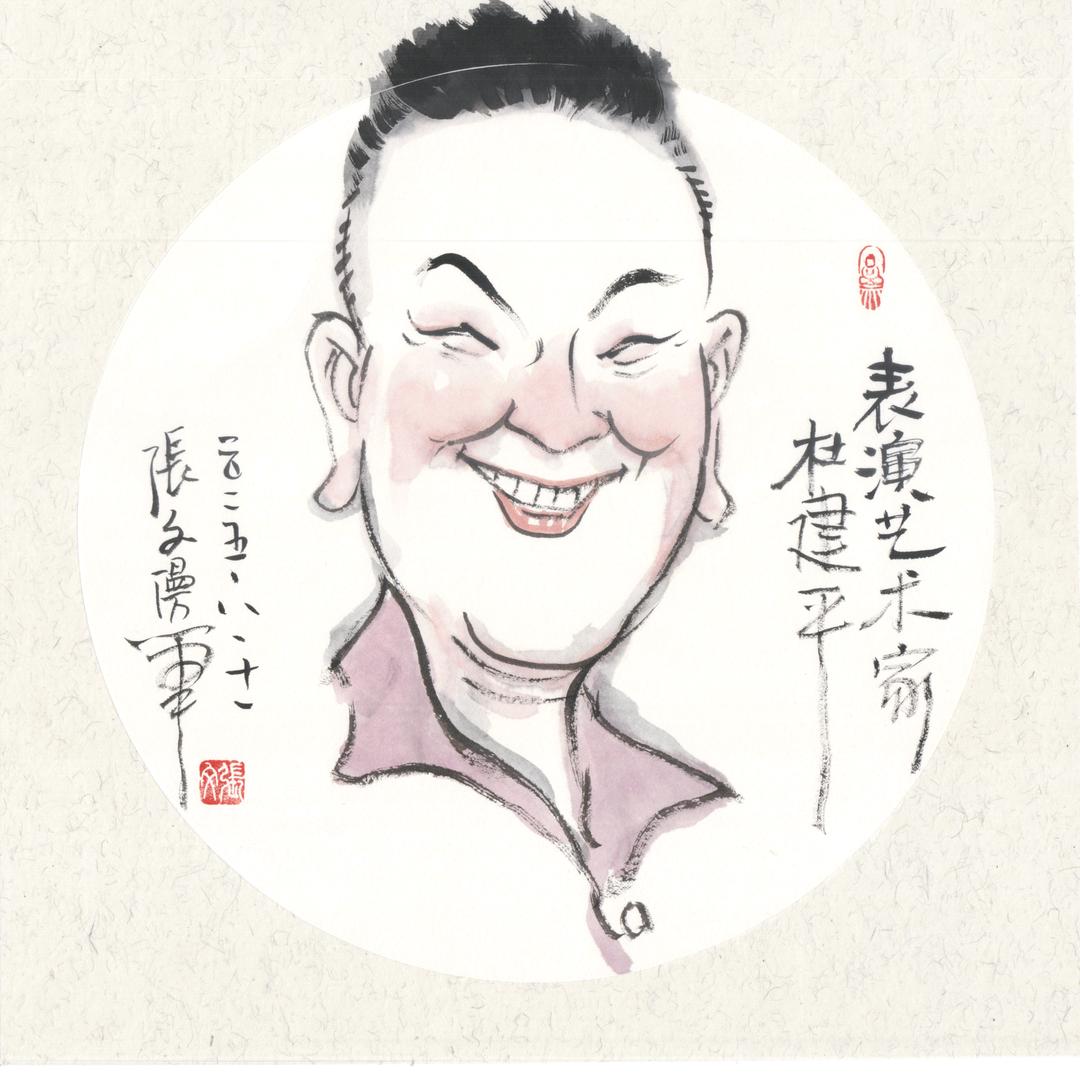 表演艺术家
杜建平
二〇二五、八、十一
張文漫
張文